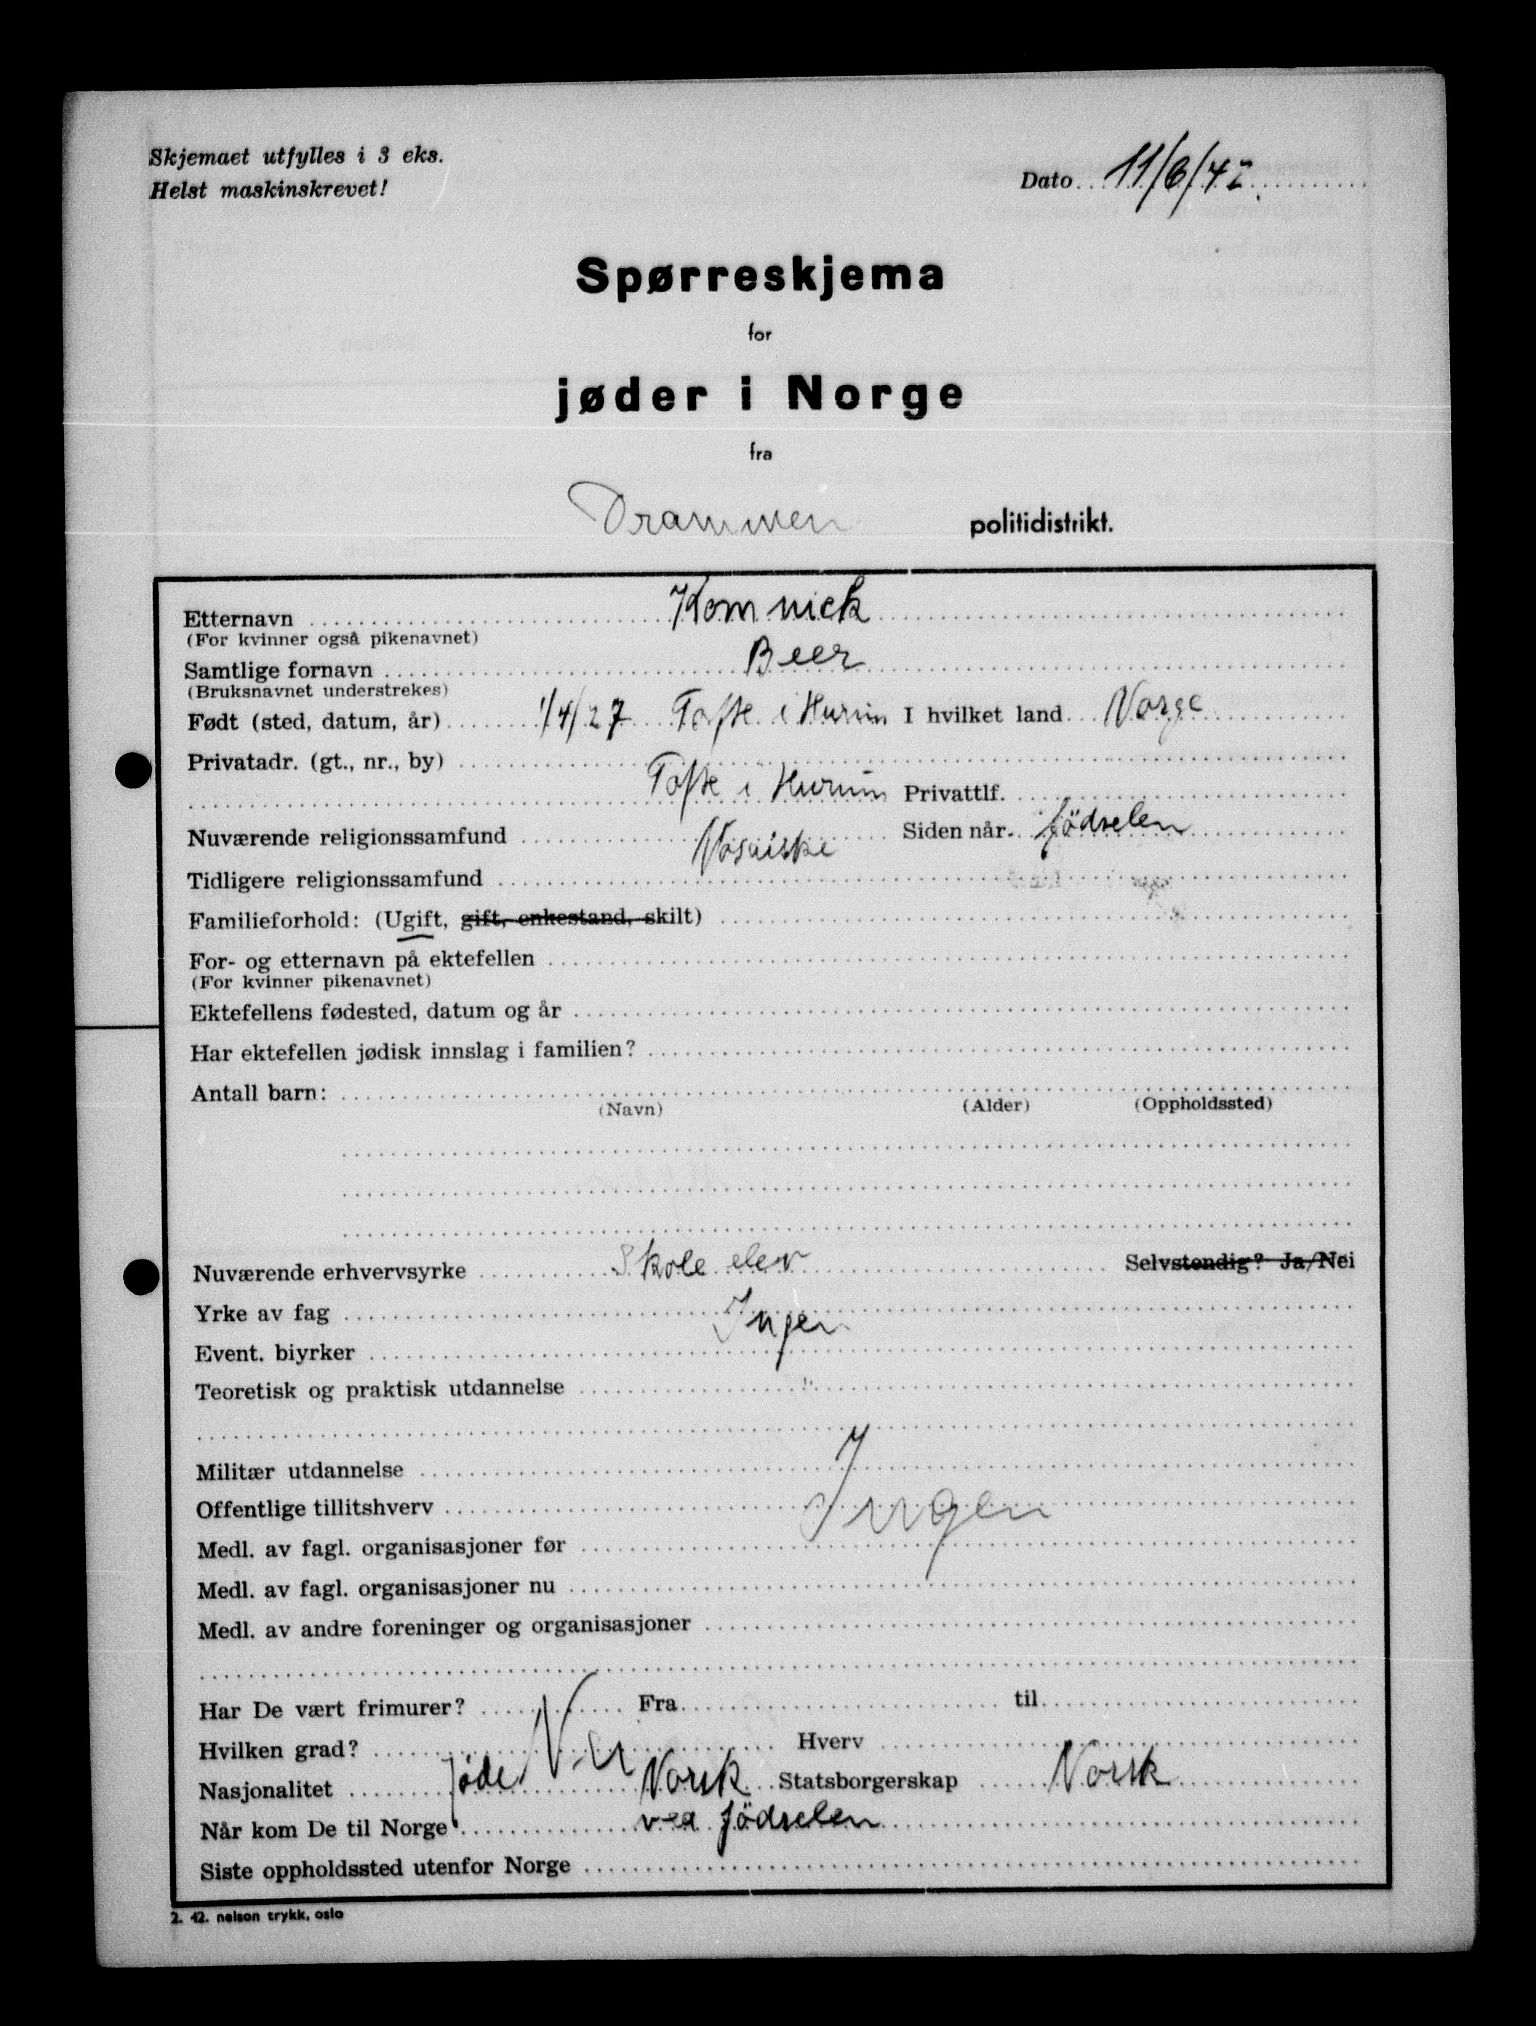 Skjemaet utfylles i 3 eks.
Helst maskinskrevet!
Dato 11/6/42.
Spørreskjema
for
jøder i Norge
fra
Drammen politidistrikt.
Etternavn Komnick
(For kvinner også pikenavnet)
Samtlige fornavn Beer
(Bruksnavnet understrekes)
Født (sted, datum, år) 1/4/27 Tofte i Hurum I hvilket land Norge
Privatadr. (gt., nr., by)
Tofte i Hurum Privattlf.
Nuværende religionssamfund Mosaiske Siden når. födselen
Tidligere religionssamfund
Familieforhold: (Ugift, gift, enkestand, skilt)
For- og etternavn på ektefellen
(For kvinner pikenavnet)
Ektefellens fødested, datum og år
Har ektefellen jødisk innslag i familien?
Antall barn:
(Navn) (Alder) (Oppholdssted)
Nuværende erhvervsyrke Skole elev Selvstendig? Ja/Nei
Yrke av fag Ingen
Event. biyrker
Teoretisk og praktisk utdannelse "
Militær utdannelse
Offentlige tillitshverv Ingen
Medl. av fagl. organisasjoner før
Medl. av fagl. organisasjoner nu
Medl. av andre foreninger og organisasjoner
Har De vært frimurer? Nei Fra til
Hvilken grad? Hverv
Nasjonalitet jøde Norsk Statsborgerskap Norsk
Når kom De til Norge ved födselen
Siste oppholdssted utenfor Norge
2. 42. nelson trykk, oslo